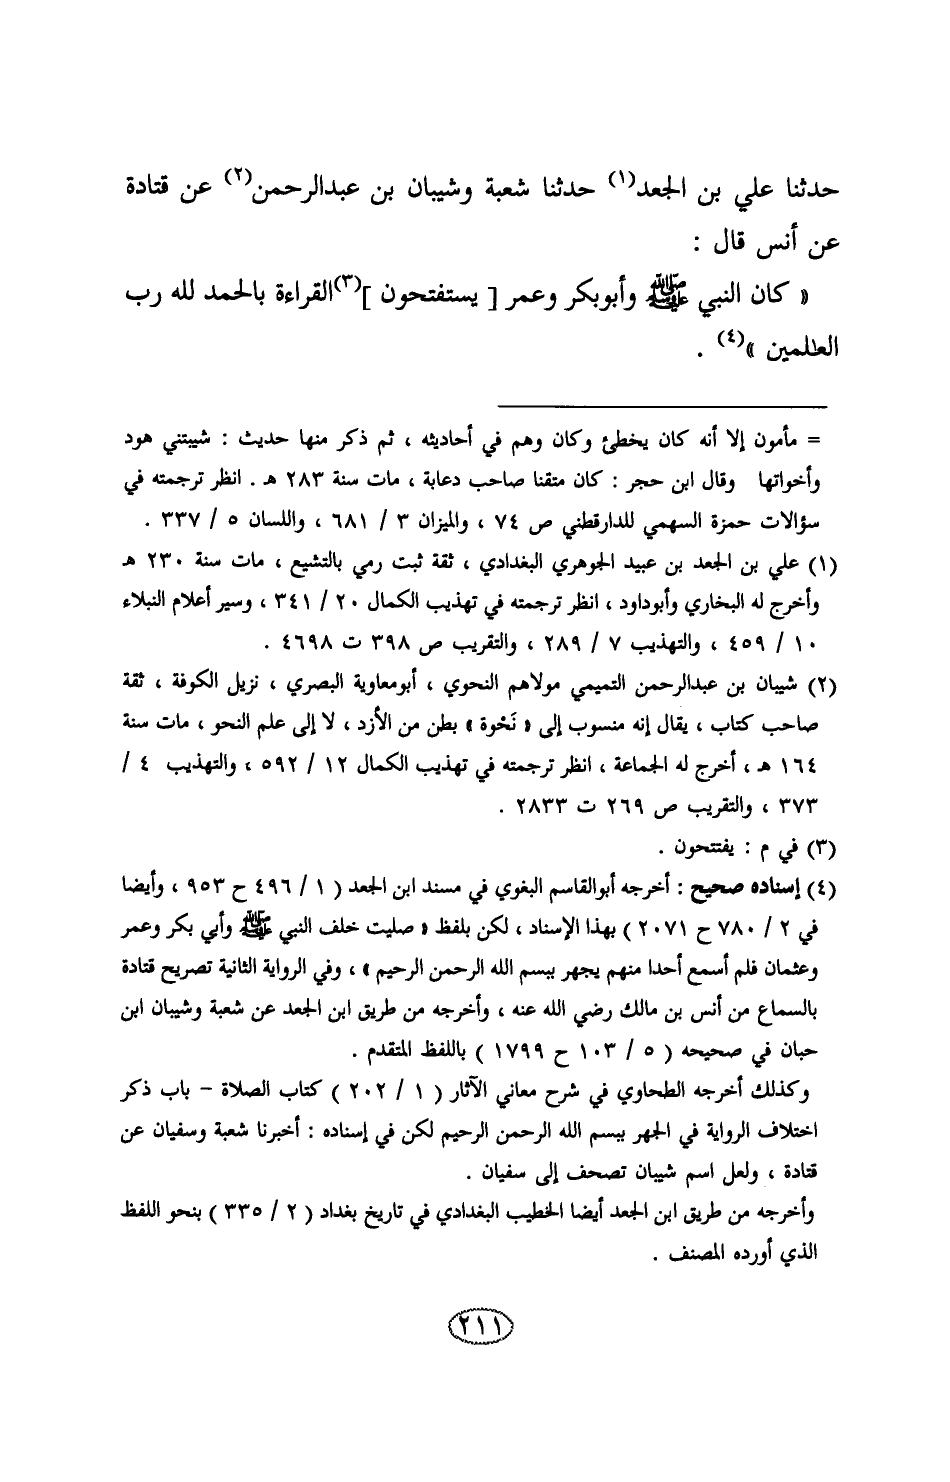 حدثنا علي بن الجعد(١) حدثنا شعبة وشيبان بن عبدالرحمن(٢) عن قتادة
عن أنس قال :
« كان النبي ﷺ وأبوبكر وعمر [ يستفتحون ](٣)القراءة بالحمد لله رب
العالمين »(٤) .
= مأمون إلا أنه كان يخطئ وكان وهم في أحاديثه ، ثم ذكر منها حديث : شيبتني هود
وأخواتها وقال ابن حجر : كان متقنا صاحب دعابة ، مات سنة ٢٨٣ هـ . انظر ترجمته في
سؤالات حمزة السهمي للدارقطني ص ٧٤ ، والميزان ٣ / ٦٨١ ، واللسان ٥ / ٣٣٧ .
(١) علي بن الجعد بن عبيد الجوهري البغدادي ، ثقة ثبت رمي بالتشيع ، مات سنة ٢٣٠ هـ
وأخرج له البخاري وأبوداود ، انظر ترجمته في تهذيب الكمال ٢٠ / ٣٤١ ، وسير أعلام النبلاء
١٠ / ٤٥٩ ، والتهذيب ٧ / ٢٨٩ ، والتقريب ص ٣٩٨ ت ٤٦٩٨ .
(٢) شيبان بن عبدالرحمن التميمي مولاهم النحوي ، أبومعاوية البصري ، نزيل الكوفة ، ثقة
صاحب كتاب ، يقال إنه منسوب إلى « نَحْوة » بطن من الأزد ، لا إلى علم النحو ، مات سنة
١٦٤ هـ ، أخرج له الجماعة ، انظر ترجمته في تهذيب الكمال ١٢ / ٥٩٢ ، والتهذيب ٤ /
٣٧٣ ، والتقريب ص ٢٦٩ ت ٢٨٣٣ .
(٣) في م : يفتتحون .
(٤) إسناده صحيح : أخرجه أبوالقاسم البغوي في مسند ابن الجعد ( ١ / ٤٩٦ ح ٩٥٣ ، وأيضا
في ٢ / ٧٨٠ ح ٢٠٧١ ) بهذا الإسناد ، لكن بلفظ « صليت خلف النبي ﷺ وأبي بكر وعمر
وعثمان فلم أسمع أحدا منهم يجهر ببسم الله الرحمن الرحيم » ، وفي الرواية الثانية تصريح قتادة
بالسماع من أنس بن مالك رضي الله عنه ، وأخرجه من طريق ابن الجعد عن شعبة وشيبان ابن
حبان في صحيحه ( ٥ / ١٠٣ ح ١٧٩٩ ) باللفظ المتقدم .
وكذلك أخرجه الطحاوي في شرح معاني الآثار ( ١ / ٢٠٢ ) كتاب الصلاة - باب ذكر
اختلاف الرواية في الجهر ببسم الله الرحمن الرحيم لكن في إسناده : أخبرنا شعبة وسفيان عن
قتادة ، ولعل اسم شيبان تصحف إلى سفيان .
وأخرجه من طريق ابن الجعد أيضا الخطيب البغدادي في تاريخ بغداد ( ٢ / ٣٣٥ ) بنحو اللفظ
الذي أورده المصنف .
٢١١